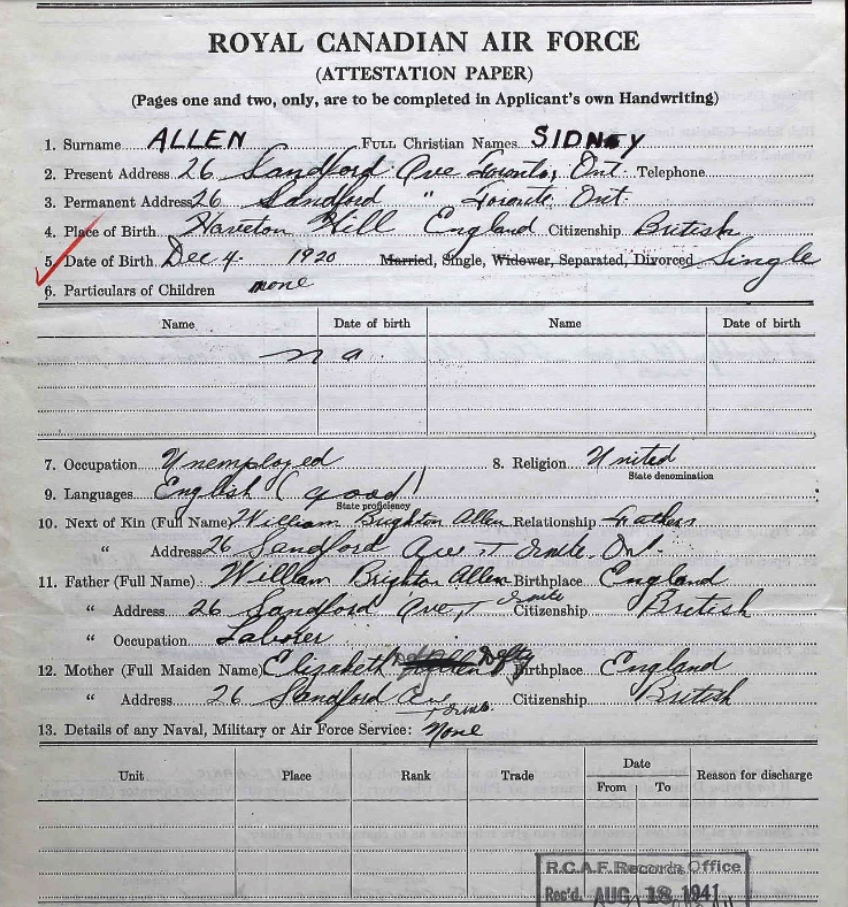 ROYAL CANADIAN AIR FORCE
(ATTESTATION PAPER)
(Pages one and two, only, are to be completed in Applicant's own Handwriting)
1. Surname ALLEN Full Christian Names SIDNEY
2. Present Address 26 Sandford Ave Toronto, Ont. Telephone
3. Permanent Address 26 Sandford " Toronto Ont.
4. Place of Birth Haverton Hill England Citizenship British
5. Date of Birth Dec 4. 1920 Married, Single, Widower, Separated, Divorced Single
6. Particulars of Children none
Name Date of birth Name Date of birth
n a.
7. Occupation Unemployed 8. Religion United
State denomination
9. Languages English (good)
State proficiency
10. Next of Kin (Full Name) William Brighton Allen Relationship Father
" Address 26 Sandford Ave Toronto. Ont.
11. Father (Full Name) William Brighton Allen Birthplace England
" Address 26 Sandford Ave, Toronto Citizenship British
" Occupation Laborer
12. Mother (Full Maiden Name) Elizabeth Birthplace England
" Address 26 Sandford Ave Toronto. Citizenship British
13. Details of any Naval, Military or Air Force Service: None
Unit Place Rank Trade Date Reason for discharge
From To
R.C.A.F. Records Office
Rec'd. AUG 18 1941